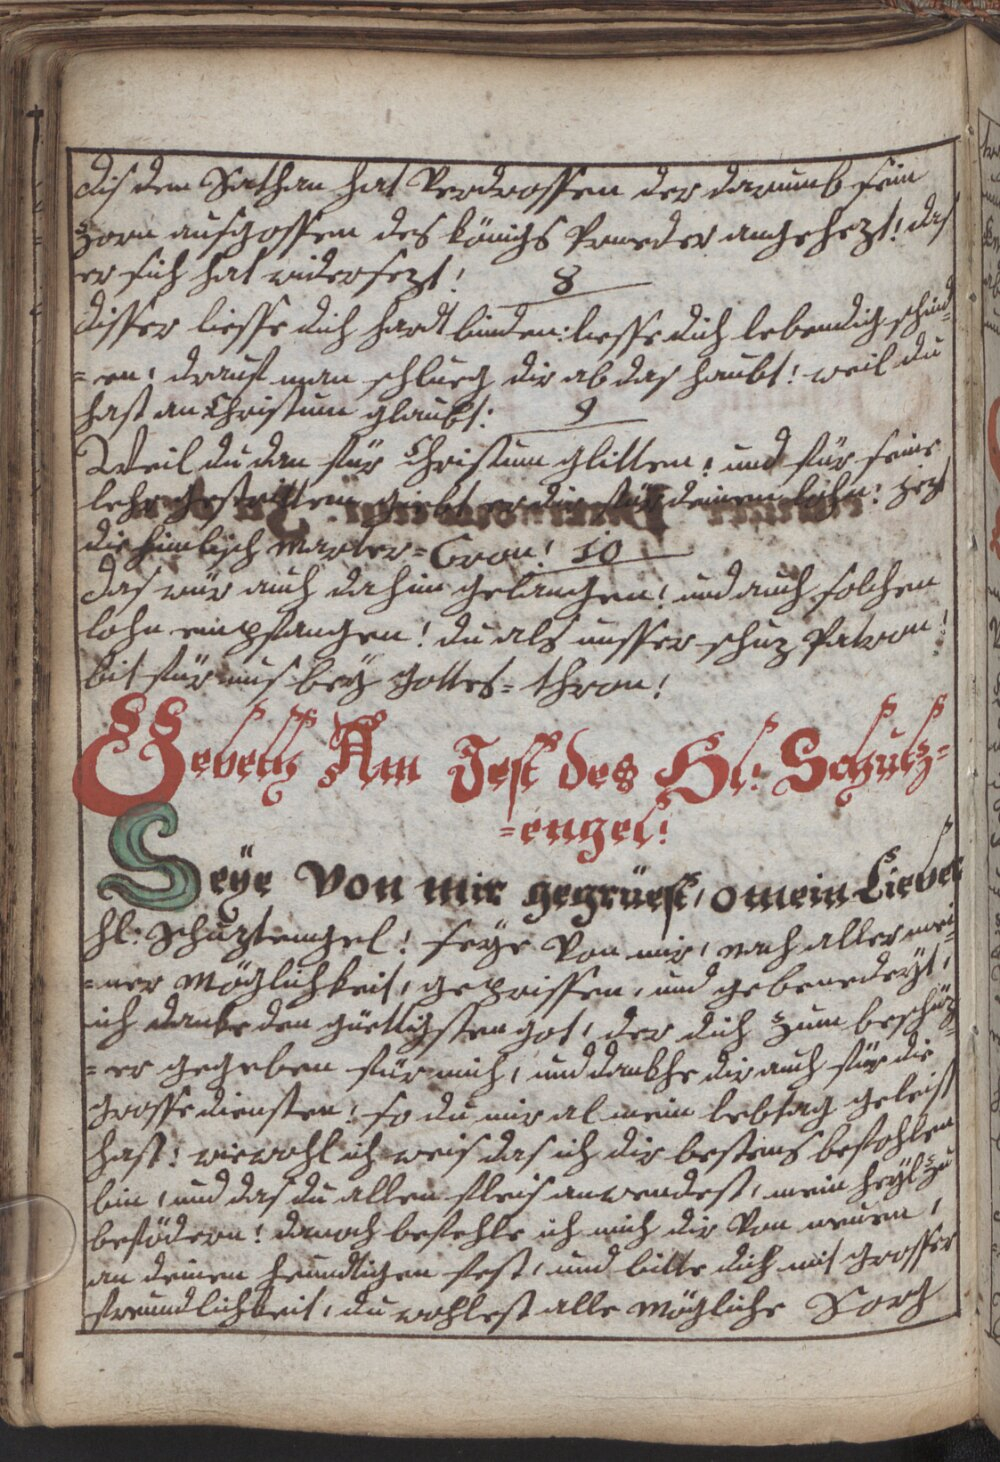 dis dem Sathan hat Verdrossen der darumb sein
zorn ausgossen des königs Prueder angehezt! das
er sich hat widersezt! 8
disser liesse dich hardt binden: liesse dich lebendig schind
=en, drauf man schlueg dir ab das haubt! weil du
hast an Christum glaubt: 9
Weil du dan für Christum glitten, und für seine
lehr gestritten giebt er dir für deinen lohn! jezt
die himlisch Marter=Cron! 10
das wür auch dahin gelangen! und auch solchen
lohn empfangen! du als unsser schuz Patron!
bit für uns bey Gottes=thron!
Gebett Am Fest des Hl: Schutz=
=engel!
Seÿe Von mir gegrüest, o mein Lieber
hl: Schuztengel! seÿe Von mir, nach aller mei
=ner Möglichkeit, geprissen, und gebenedeÿt,
ich danke den güettigsten got, der dich zum beschüz
=er gegeben für mich, und dankhe dir auch für die
grosse diensten, so du mir al mein lebtag geleist
hast! wiewohl ich weis das ich dir bestens befohlen
bin, und das du allen fleis anwendest, mein heÿl zu
befödern! danoch befehle ich mich dir Von neuen,
an deinen heundtigen fest, und bitte dich mit grosser
freundlichkeit, du wohlest alle Mögliche Sorg